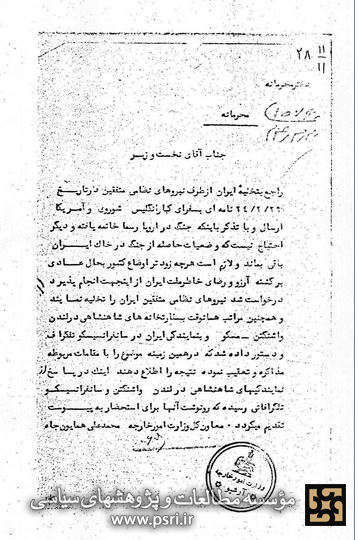 ۲۸ ۱۱/۱۱
دفتر محرمانه
محرمانه
جناب آقای نخست وزیر
راجع بتخلیهٔ ایران ازطرف نیروهای نظامی متفقین درتاریخ
۲۴/۲/۲۲ نامه ای بسفرای کبارانگلیس شوروی و آمریکا
ارسال و با تذکر باینکه جنگ در اروپا رسما خاتمه یافته و دیگر
احتیاج نیست که وضعیات حاصله از جنگ در خاک ایران
باقی بماند و لازم است هرچه زودتر اوضاع کشور بحال عادی
برگشته آرزو و رضای خاطرملت از اینجهت انجام پذیرد
درخواست شد نیروهای نظامی متفقین ایران را تخلیه نمایند
و همچنین مراتب همانوقت بسفارتخانه های شاهنشاهی درلندن
واشنگتن مسکو و بنمایندگی ایران در سانفرانسیسکو تلگراف
و دستور داده شد که درهمین زمینه موضوع را با مقامات مربوطه
مذاکره و تعقیب نموده نتیجه را اطلاع دهند اینک در پاسخ از
نمایندگیهای شاهنشاهی در لندن واشنگتن و سانفرانسیسکو
تلگرافاتی رسیده که رونوشت آنها برای استحضار به پیوست
تقدیم میگردد . معاون کل وزارت امورخارجه محمدعلی همایون جاه
وزارت امور خارجه
آرشیو
مؤسسه مطالعات و پژوهشهای سیاسی
www.psri.ir